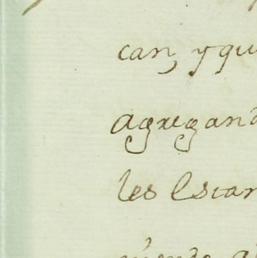 can, y qu
agregand
les Estan